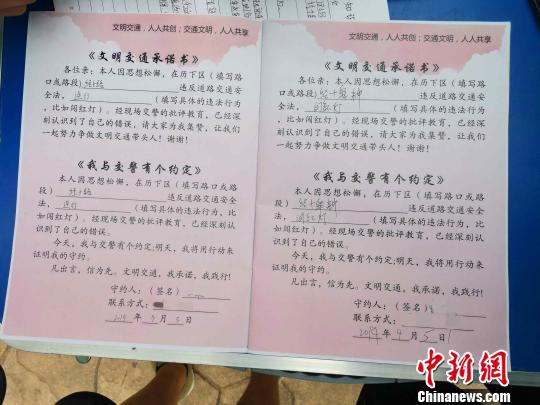 文明交通，人人共创；交通文明，人人共享
《文明交通承诺书》
各位亲：本人因思想松懈，在历下区（填写路
口或路段）违反道路交通安
全法，（填写具体的违法行为
，比如闯红灯）。经现场交警的批评教育，已经深
刻认识到了自己的错误，请大家为我集赞，让我们
一起努力争做文明交通带头人！谢谢！
《我与交警有个约定》
本人因思想松懈，在历下区（填写路口或路
段）违反道路交通安全法，
逆行（填写具体的违法行为，比
如闯红灯）。经现场交警的批评教育，已经深刻认
识到了自己的错误。
今天，我与交警有个约定；明天，我将用行动来
证明我的守约。
凡出言，信为先。文明交通，我承诺，我践行！
守约人：（签名）
联系方式：
年 月 日
文明交通，人人共创；交通文明，人人共享
《文明交通承诺书》
各位亲：本人因思想松懈，在历下区（填写路
口或路段）违反道路交通安
全法，闯红灯（填写具体的违法行为
，比如闯红灯）。经现场交警的批评教育，已经深
刻认识到了自己的错误，请大家为我集赞，让我们
一起努力争做文明交通带头人！谢谢！
《我与交警有个约定》
本人因思想松懈，在历下区（填写路口或路
段）违反道路交通安全法，
闯红灯（填写具体的违法行为，比
如闯红灯）。经现场交警的批评教育，已经深刻认
识到了自己的错误。
今天，我与交警有个约定；明天，我将用行动来
证明我的守约。
凡出言，信为先。文明交通，我承诺，我践行！
守约人：（签名）
联系方式：
年 4 月 5 日
中新网
Chinanews.com